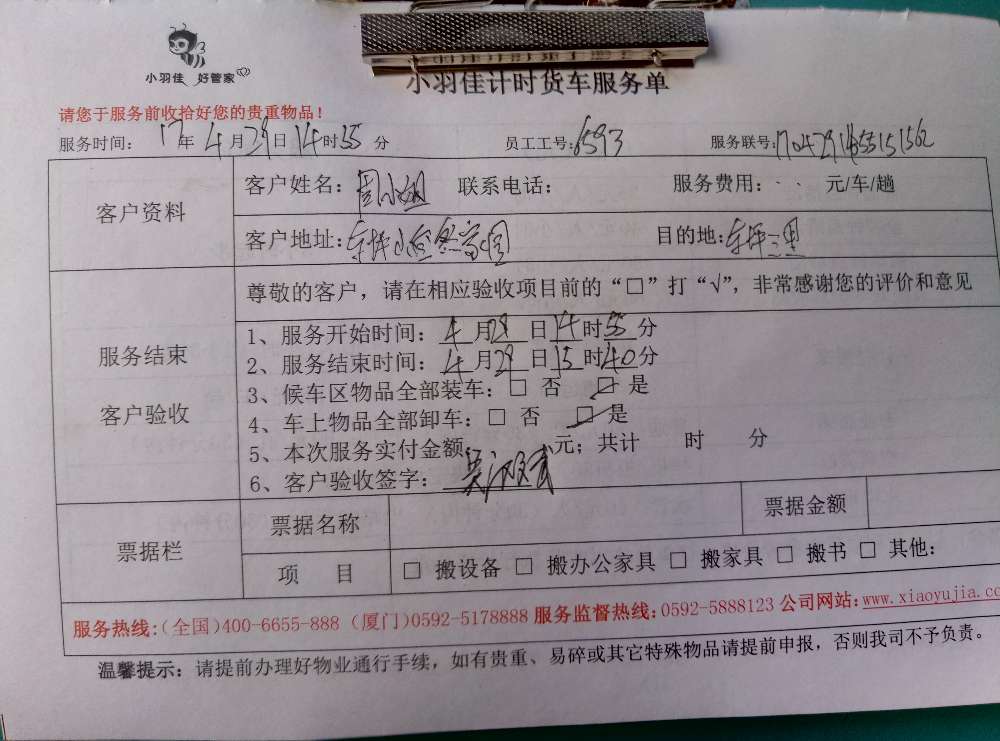 小羽佳 好管家
小羽佳计时货车服务单
请您于服务前收拾好您的贵重物品！
服务时间： 17年 4月29日14时55分 员工工号：6593 服务联号：
客户资料
客户姓名：周小姐 联系电话： 服务费用： 元/车/趟
客户地址： 目的地：
服务结束
客户验收
尊敬的客户，请在相应验收项目前的“□”打“√”，非常感谢您的评价和意见
1、服务开始时间：4月29日14时55分
2、服务结束时间：4月29日15时40分
3、候车区物品全部装车：□ 否 ☑ 是
4、车上物品全部卸车：□ 否 ☑ 是
5、本次服务实付金额： 元；共计 时 分
6、客户验收签字：
票据栏
票据名称 票据金额
项 目 □ 搬设备 □ 搬办公家具 □ 搬家具 □ 搬书 □ 其他：
服务热线：（全国）400-6655-888（厦门）0592-5178888 服务监督热线：0592-5888123 公司网站：www.xiaoyujia.co
温馨提示：请提前办理好物业通行手续，如有贵重、易碎或其它特殊物品请提前申报，否则我司不予负责。